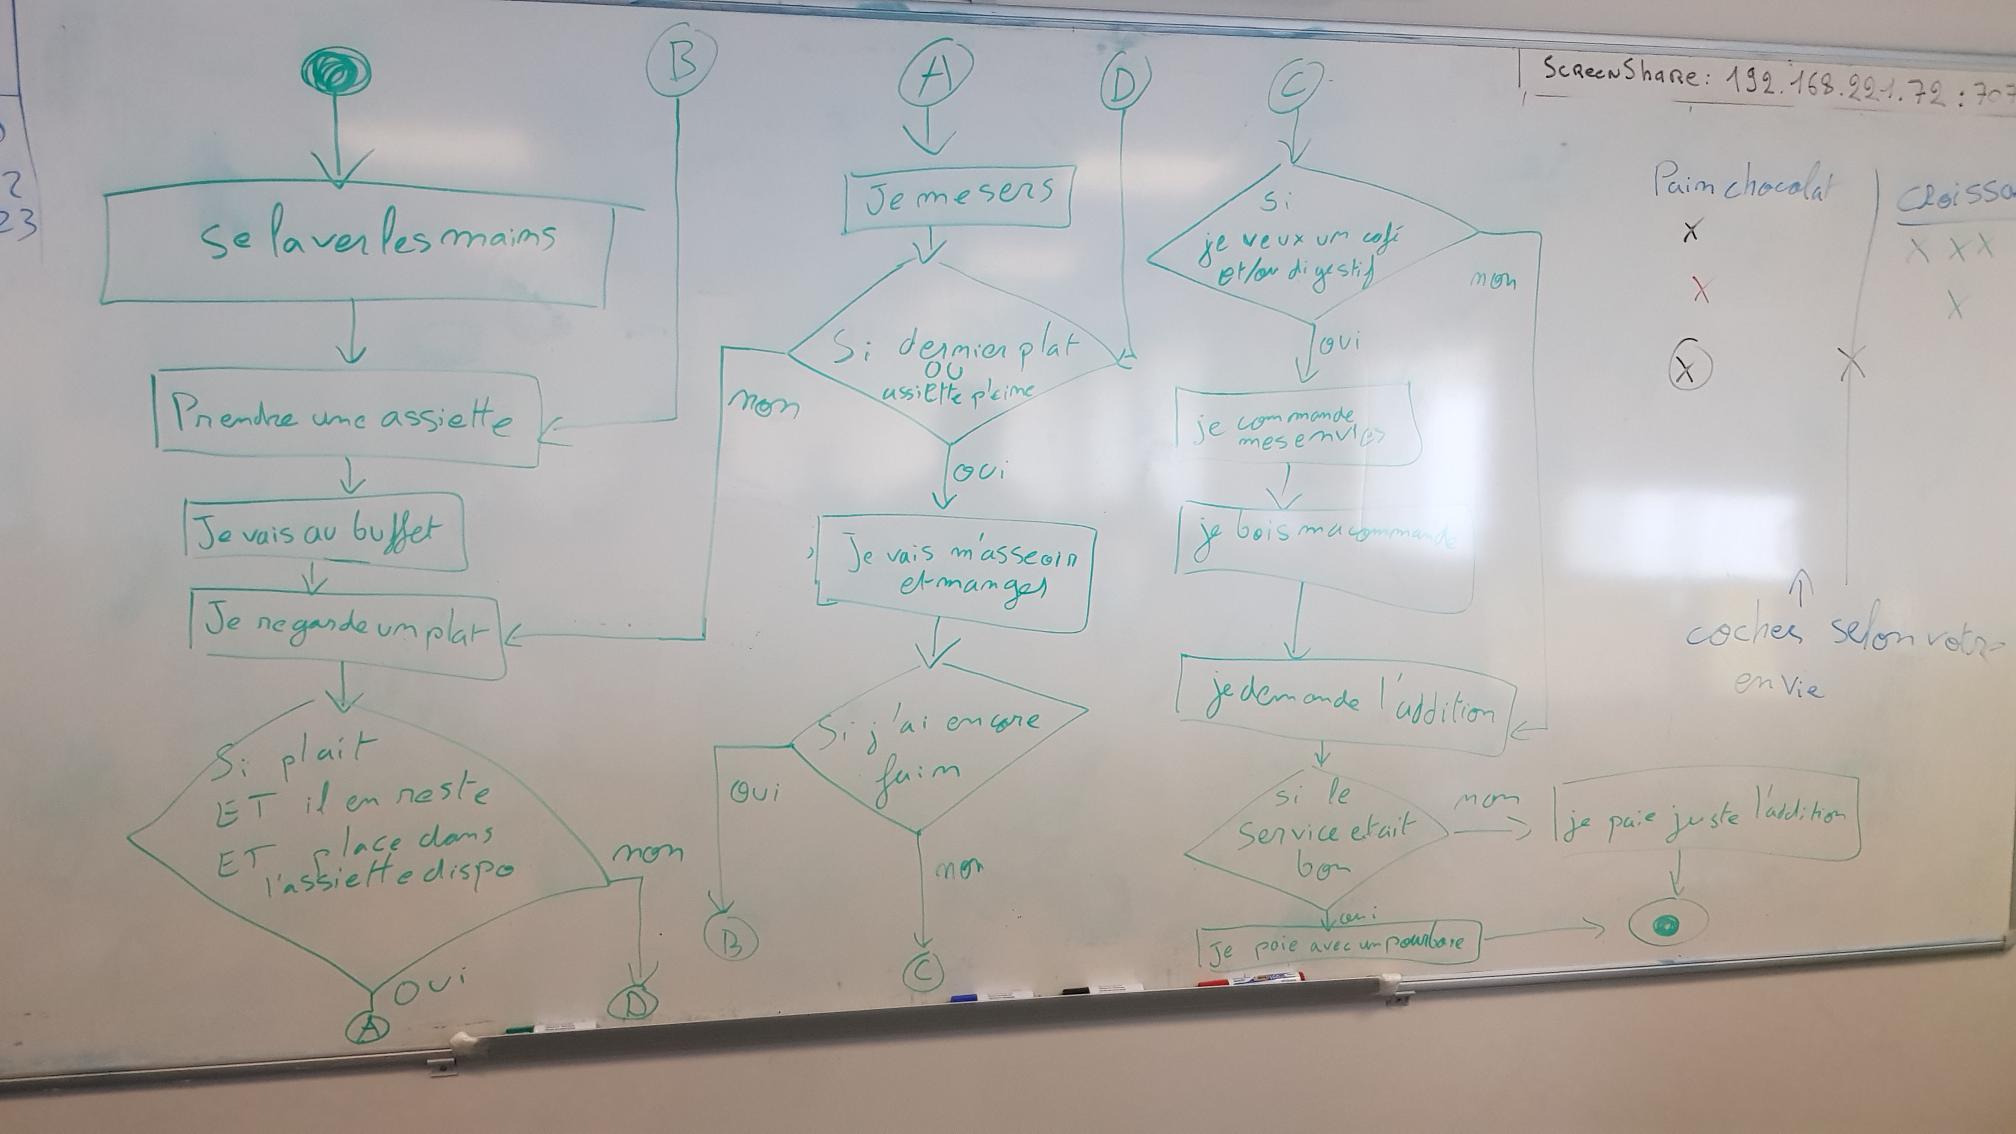 B
A
D
C
ScreenShare: 192.168.221.72:707
2
23
Se laver les mains
Prendre une assiette
Je vais au buffet
Je regarde un plat
Si plait
ET il en reste
ET place dans
l'assiette dispo
non
D
oui
A
Je me sers
Si dernier plat
OU
assiette pleine
non
oui
Je vais m'asseoir
et manger
Si j'ai encore
faim
oui
B
non
C
Si
je veux un café
et/ou digestif
non
oui
je commande
mes envies
je bois ma commande
je demande l'addition
si le
service etait
bon
non
je paie juste l'addition
oui
Je paie avec un pourboire
Pain chocolat
Croissa
X
X X X
X
X
X
X
coches selon votre
envie